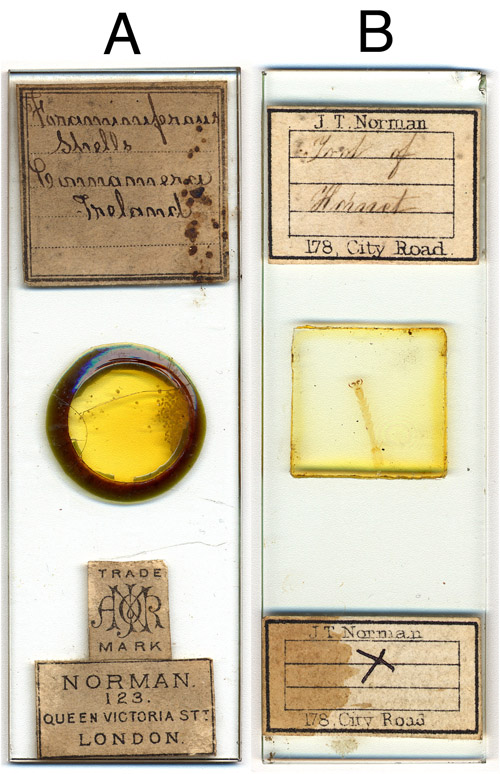 A
B
Foraminiferous
Shells
Connamera
Ireland
TRADE
MARK
NORMAN.
123.
QUEEN VICTORIA ST.
LONDON.
J. T. Norman
Foot of
Hornet
178, City Road.
J T Norman
X
178, City Road